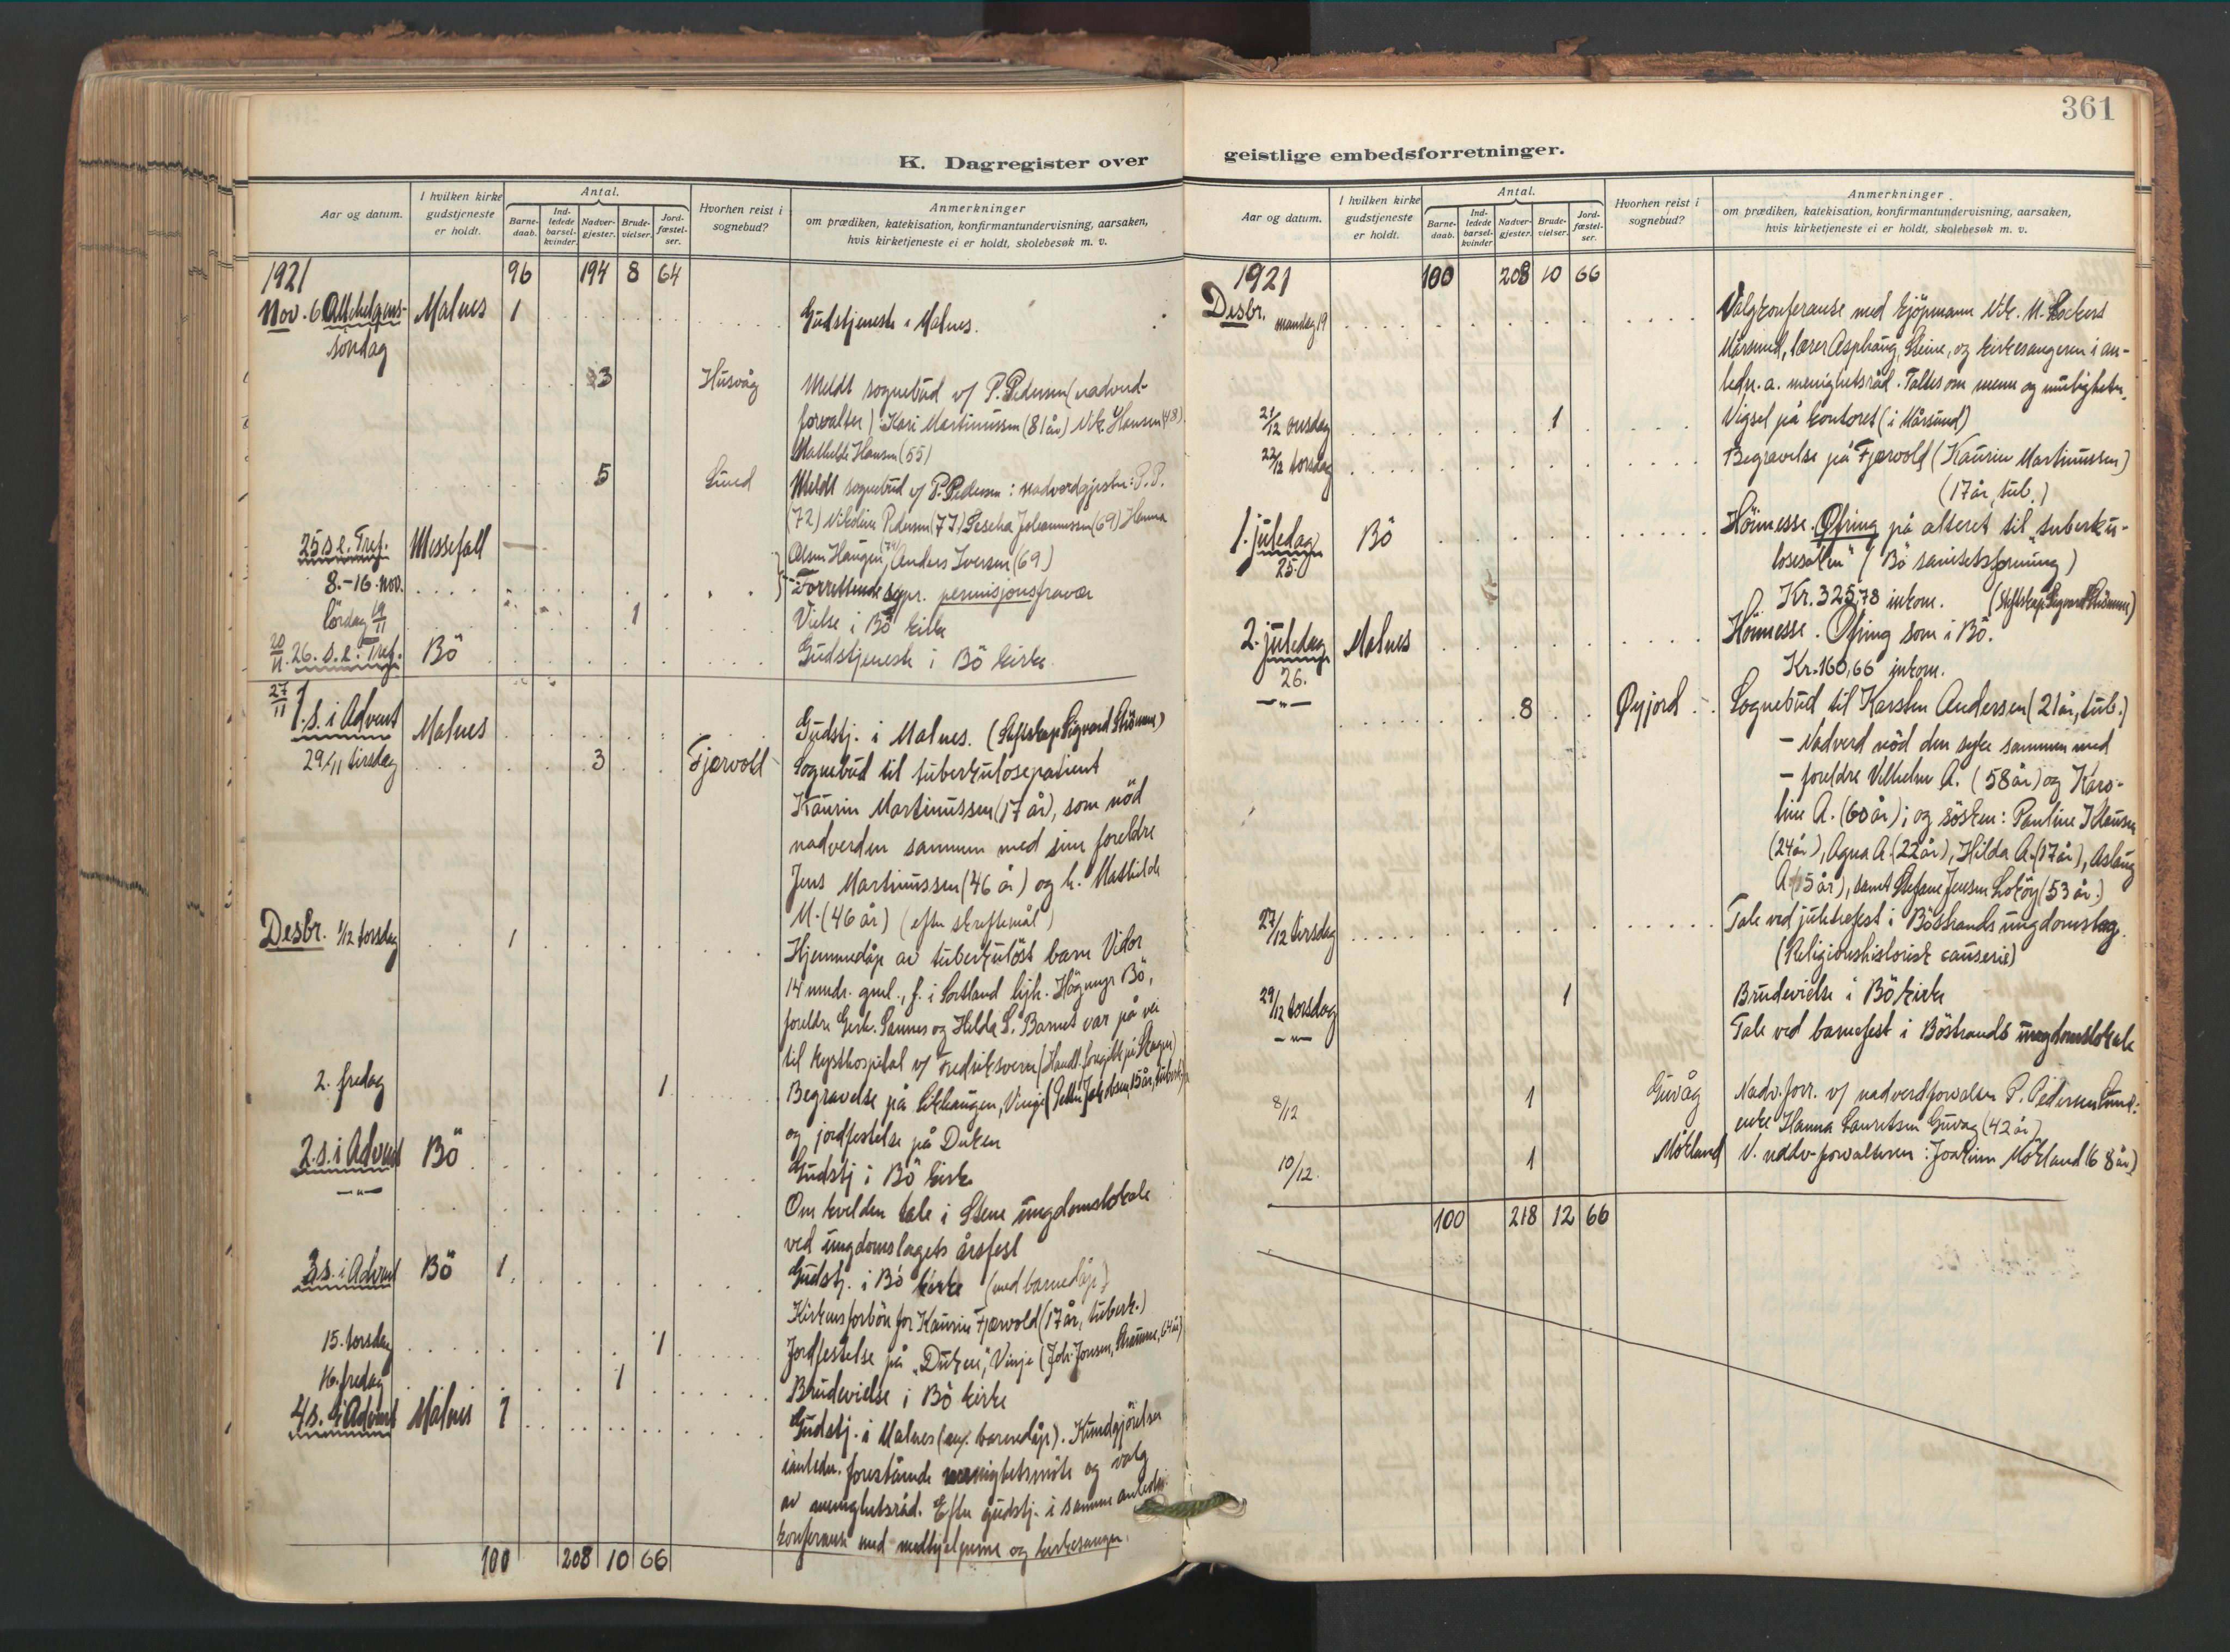 361
K. Dagregister over
geistlige embedsforretninger.
Aar og datum.
I hvilken kirke
gudstjeneste
er holdt.
Antal.
Barne-
daab.
Ind-
ledede
barsel-
kvinder.
Nadver-
gjester.
Brude-
vielser.
Jord-
fæstel-
ser.
Hvorhen reist i
sognebud?
Anmerkninger
om prædiken, katekisation, konfirmantundervisning, aarsaken,
hvis kirketjeneste ei er holdt, skolebesøk m. v.
1921 96 194 8 64
Nov. 6 Allehelgens- Malnes 1 Gudstjeneste i Malnes.
søndag
3 Husvåg Meldt sognebud v/ P. Pedersen (nadverd-
forvalter) : Kari Martinussen (81 år) Nik. Hansen (48)
Mathilde Hansen (55)
5 Lund Meldt sognebud v/ P. Pedersen : nadverdgjester: P. P.
(72) Nikoline Pedersen (77) Johannessen (69) Hanna
Olsen Haugen, Anders Iversen (69)
25 s. e. Tref. Messefall
8.-16. nov. Forrettende sgpr. permisjonsfravær
lördag 19/11 1 Vielse i Bö kirke
20/11 26. s. e. Tref. Bö Gudstjeneste i Bö kirke
27/11 1. s. i Advent Malnes Gudstj. i Malnes. (Stiftskap. Sigvard Strömme)
29/11 tirsdag 3 Fjærvoll Sognebud til tuberkulosepatient
Kaurin Martinussen (17 år), som nöd
nadverden sammen med sine foreldre
Jens Martinussen (46 år) og h. Mathilde
M. (46 år) (efter skriftemål)
Desbr. 1/12 torsdag 1 Hjemmedåp av tuberkulöst barn Vidor
14 mndr. gml., f. i Sortland Högmyr Bö,
foreldre Gerh. Sannes og Hilda S. Barnet var på vei
til kysthospital v/ Fredriksvern
2. fredag 1 Begravelse på Likhaugen, Vinje (15 år, tuberk.)
og jordfestelse på Duken
2. s. i Advent Bö Gudstj i Bö kirke
-"- Om kvelden tale i Steine ungdomslokale
ved ungdomslagets årsfest
3 s. i Advent Bö 1 Gudstj. i Bö kirke (med barnedåp)
Kirkens forbön for Kaurin Fjærvold (17 år, tuberk.)
15. torsdag 1 Jordfestelse på "Duken", Vinje (Joh. Jonsen, Strømme, 64 år)
16. fredag 1 Brudevielse i Bö kirke
4 s. i Advent Malnes 1 Gudstj. i Malnes (m. barnedåp). Kundgjörelse
i anledn. forestående menighetsmöte og valg
av menighetsråd. Efter gudstj. i samme anledn.
konferanse med medhjelperne og kirkesanger.
100 208 10 66
Aar og datum.
I hvilken kirke
gudstjeneste
er holdt.
Antal.
Barne-
daab.
Ind-
ledede
barsel-
kvinder
Nadver-
gjester.
Brude-
vielser.
Jord-
fæstel-
ser.
Hvorhen reist i
sognebud?
Anmerkninger
om prædiken, katekisation, konfirmantundervisning, aarsaken,
hvis kirketjeneste ei er holdt, skolebesøk m. v.
1921 100 208 10 66
Desbr. mandag 19 Valgkonferanse med kjöpmann Nik. M. Lockert
Mårsund, lærer Asphaug, Steine, og kirkesangeren i an-
ledn. a. menighetsråd. Taltes om menn og muligheter.
21/12 onsdag 1 Vigsel på kontoret (i Mårsund)
22/12 torsdag Begravelse på Fjærvold (Kaurin Martinussen)
(17 år, tub.)
1. juledag Bö Höimesse. Ofring på alteret til "tuberku-
25. losesaken" (Bö sanitetsforening)
Kr. 325,78 innkom. (Stiftskap. Sigvard Strömme)
2. juledag Malnes Höimesse. Ofring som i Bö.
26. Kr. 160,66 innkom.
-"- 8 Øyjord Sognebud til Karsten Andersen (21 år, tub.)
- Nadverd nöd den syke sammen med
- foreldre Vilhelm A. (58 år) og Karo-
line A. (60 år); og sösken: Pauline Klausen
(24 år), Agna A. (22 år), Hilda A. (17 år), Aslaug
A. (15 år), samt Stefane Jensen (53 år.)
27/12 tirsdag Tale ved juletrefest i Böstrands ungdomslag.
(Religionshistorisk causerie)
29/12 torsdag 1 Brudevielse i Bö kirke
-"- Tale ved barnefest i Böstrands ungdomslokale
8/12 1 Guvåg Nadv. forr. v/ nadverdforvalter P. Pedersen Lund:
enke Hanna Lauritsen Guvåg (42 år)
10/12. 1 Mörland V. nadv-forvalteren : Joakim Mörland (68 år)
100 218 12 66